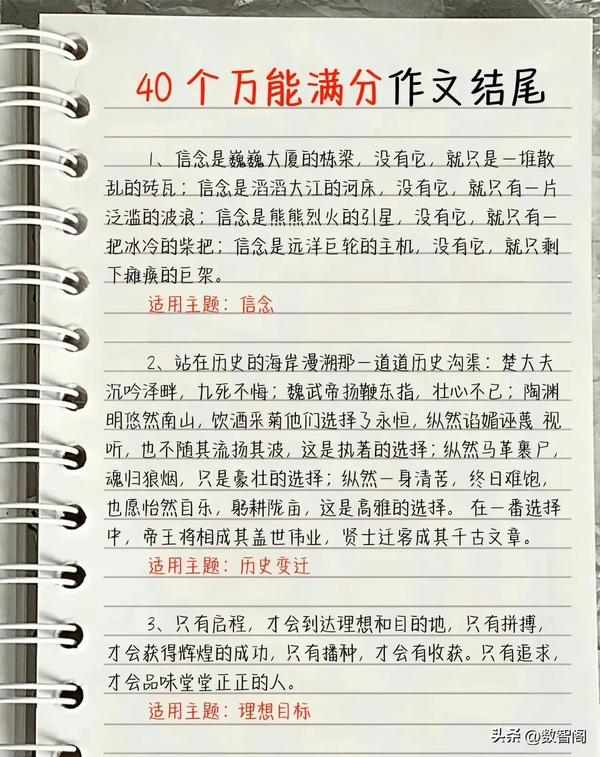 40个万能满分作文结尾
1、信念是巍巍大厦的栋梁，没有它，就只是一堆散
乱的砖瓦；信念是滔滔大江的河床，没有它，就只有一片
泛滥的波浪；信念是熊熊烈火的引星，没有它，就只有一
把冰冷的柴把；信念是远洋巨轮的主机，没有它，就只剩
下瘫痪的巨架。
适用主题：信念
2、站在历史的海岸漫溯那一道道历史沟渠：楚大夫
沉吟泽畔，九死不悔；魏武帝扬鞭东指，壮心不已；陶渊
明悠然南山，饮酒采菊他们选择了永恒，纵然谄媚诬蔑 视
听，也不随其流扬其波，这是执著的选择；纵然马革裹尸，
魂归狼烟，只是豪壮的选择；纵然一身清苦，终日难饱，
也愿怡然自乐，躬耕陇亩，这是高雅的选择。 在一番选择
中，帝王将相成其盖世伟业，贤士迁客成其千古文章。
适用主题：历史变迁
3、只有启程，才会到达理想和目的地，只有拼搏，
才会获得辉煌的成功，只有播种，才会有收获。只有追求，
才会品味堂堂正正的人。
适用主题：理想目标
头条 @数智阁